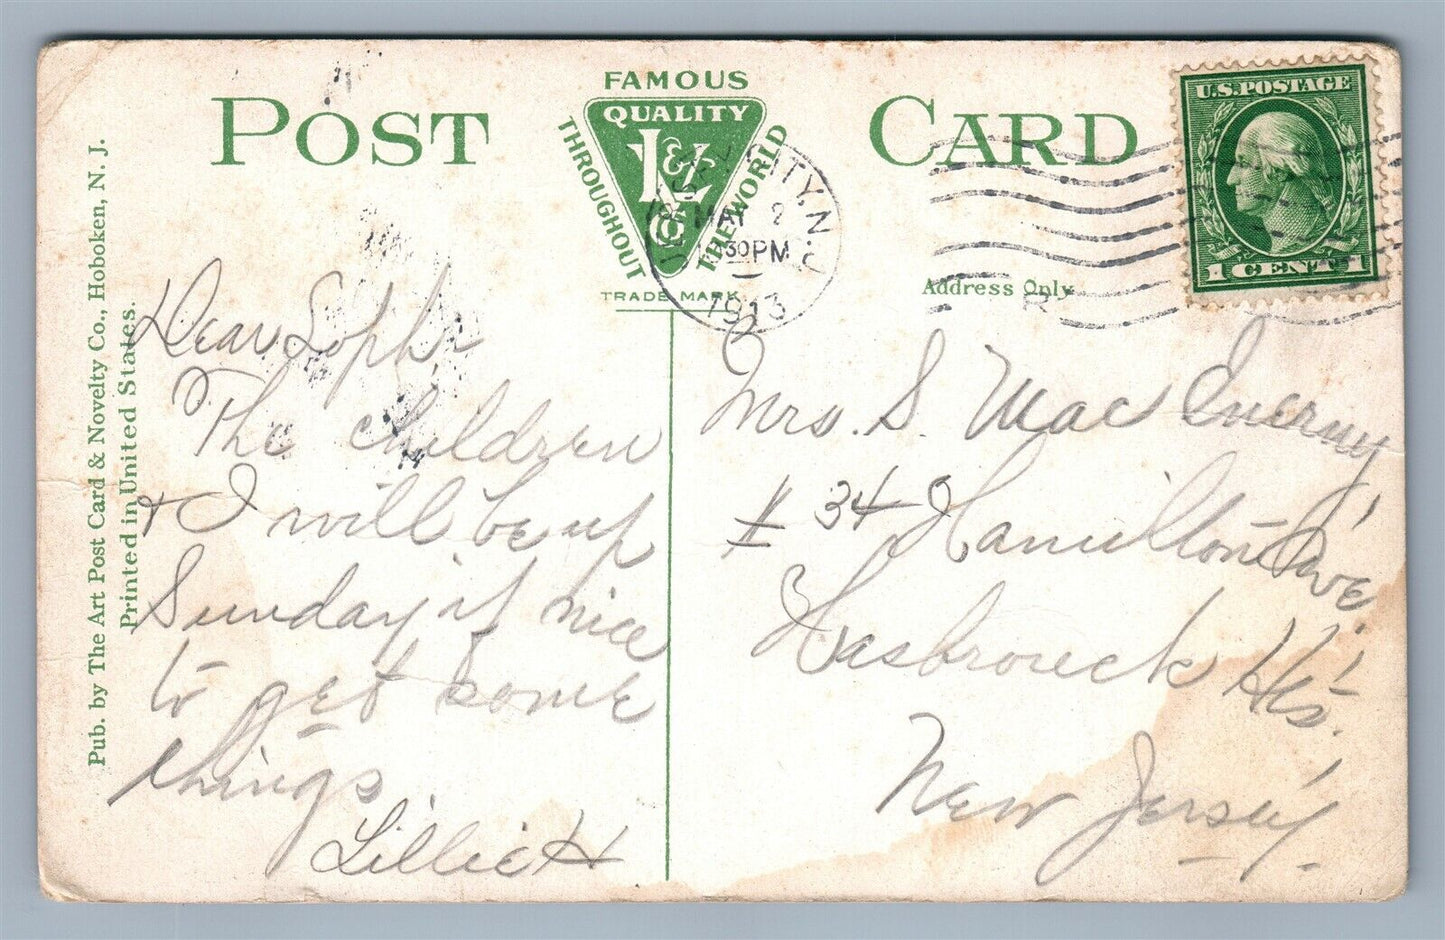 POST CARD
FAMOUS
QUALITY
THROUGHOUT
THE WORLD
TRADE MARK
Address Only
U.S. POSTAGE
1 CENT 1
CITY, N. J.
MAY 2
30 PM
1913
R
Pub. by The Art Post Card & Novelty Co., Hoboken, N. J.
Printed in United States.
Dear Soph
The children
& I will be up
Sunday if nice
to get some
things
Lillie H
Mrs. S. Mac Enerny
# 34 Hamilton Ave.
Hasbrouck Hts.
New Jersey.